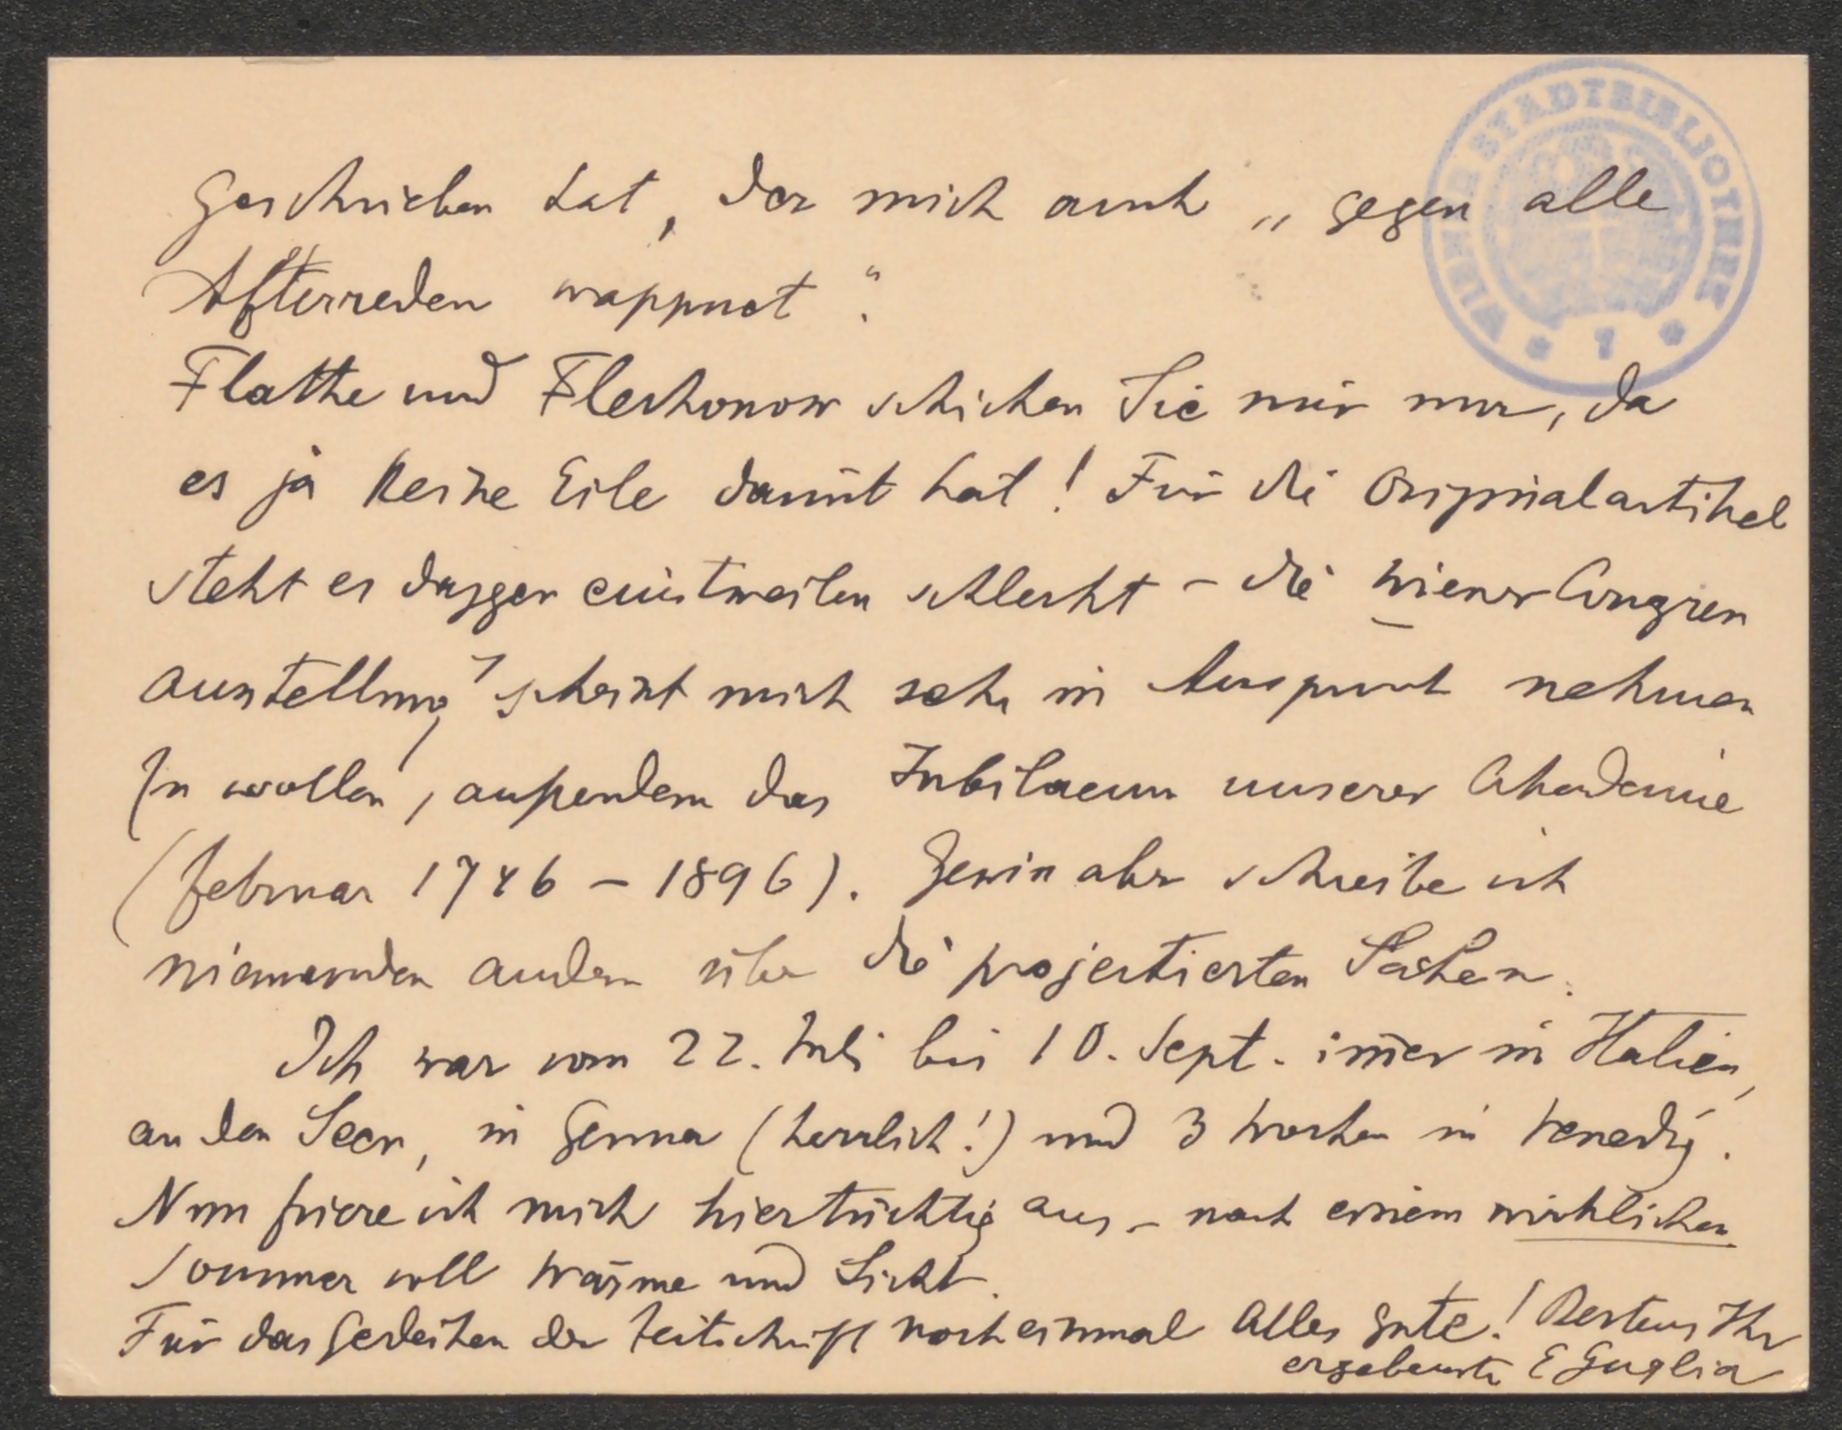 geschrieben hat, der mich auch „gegen alle
Afterreden wappnet“.
Flathe und Fleckonow schicken Sie mir nur, da
es ja keine Eile damit hat! Für die Originalartikel
steht es dagegen einstweilen schlecht – die Wiener Congress
ausstellung scheint mich sehr in Anspruch nehmen
zu wollen, außerdem das Jubilaeum unserer Akademie
(Februar 1746 – 1896). Gewiss aber schreibe ich
niemandem andern über die projectierten Sachen.
Ich war vom 22. Juli bis 10. Sept. im̅er in Italien,
an den Seen, in Genua (herrlich!) und 3 Wochen in Venedig.
Nun friere ich mich hier tüchtig aus – nach einem wirklichen
Sommer voll Wärme und Licht.
Für das Gedeihen der Zeitschrift noch einmal Alles Gute! Bestens Ihr
ergebenster E Guglia
WIENER STADTBIBLIOTHEK